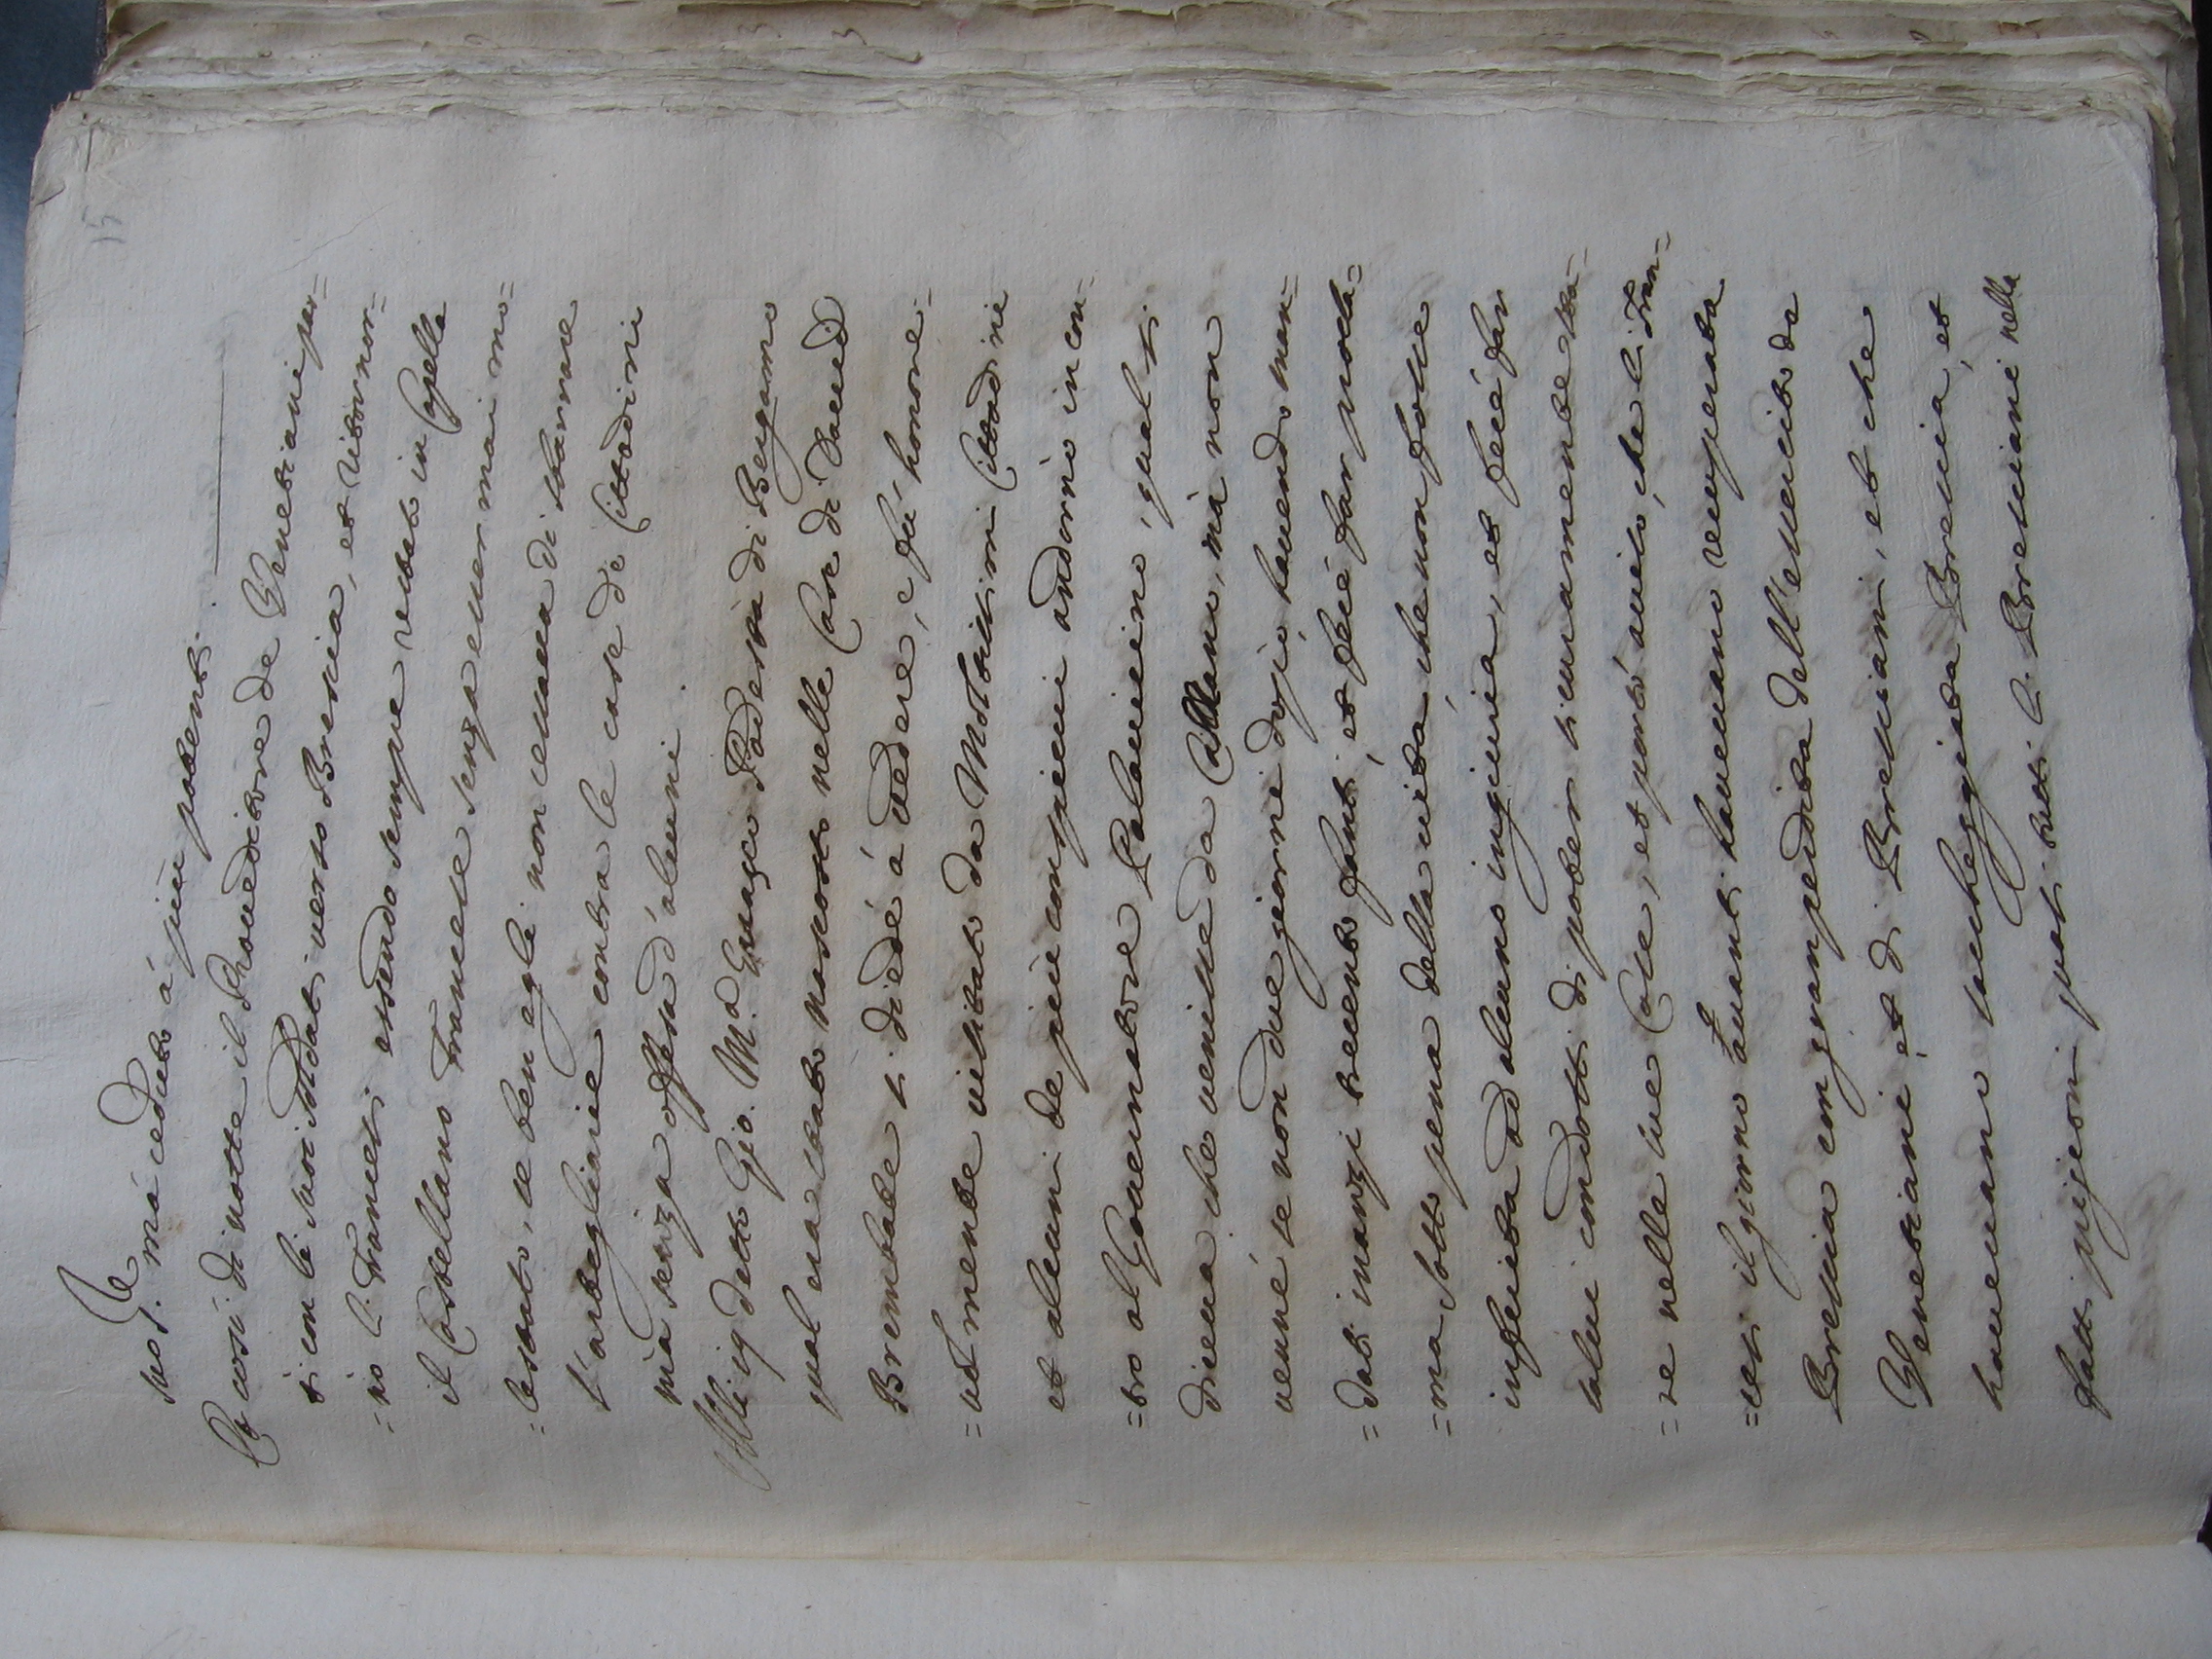 15
suo Rè mà ceduto à piu potenti.
Et così di notte il Proueditore de Venetiani par=
ti con li suoi soldati uerso Brescia, et ritornor=
=no li Francesi essendo sempre restato in Capella
il Castellano Francese senza esser mai mo=
=lestato, se ben egli non cessaua di sbarrare
l'arteglierie contra le case de Cittadini
mà senza offesa d'alcuni.
Alli 19 detto Gio. M.a Podestà di Bergamo
qual era stato nascosto nelle Case di Dauid
Brembate si diede à uedere, e fù honore=
=uolmente uisitato da Moltissimi Cittadini
et alcuni de piu conspicui andorno in con=
=tro al Gouernatore Palauicino, qual si
diceua che uenisse da Cassano, mà non
uenne se non due giorni dopò, hauendo man=
=dati inanzi trecento fanti, et fece far procla=
=ma sotto pena della uita che non fosse
inferita ad alcuno ingiuria, et fece far
salui condotti di poter sicuramente sta=
=re nelle sue Case, et portò auiso, che li Fran=
=cesi il giorno auanti haueuano recuperata
Brescia con gran perdita dell'essercito de
Venetiani, et di Bresciani, et che
haueuano saccheggiata Brescia, et
fatti prigioni quasi tutti li Bresciani nella